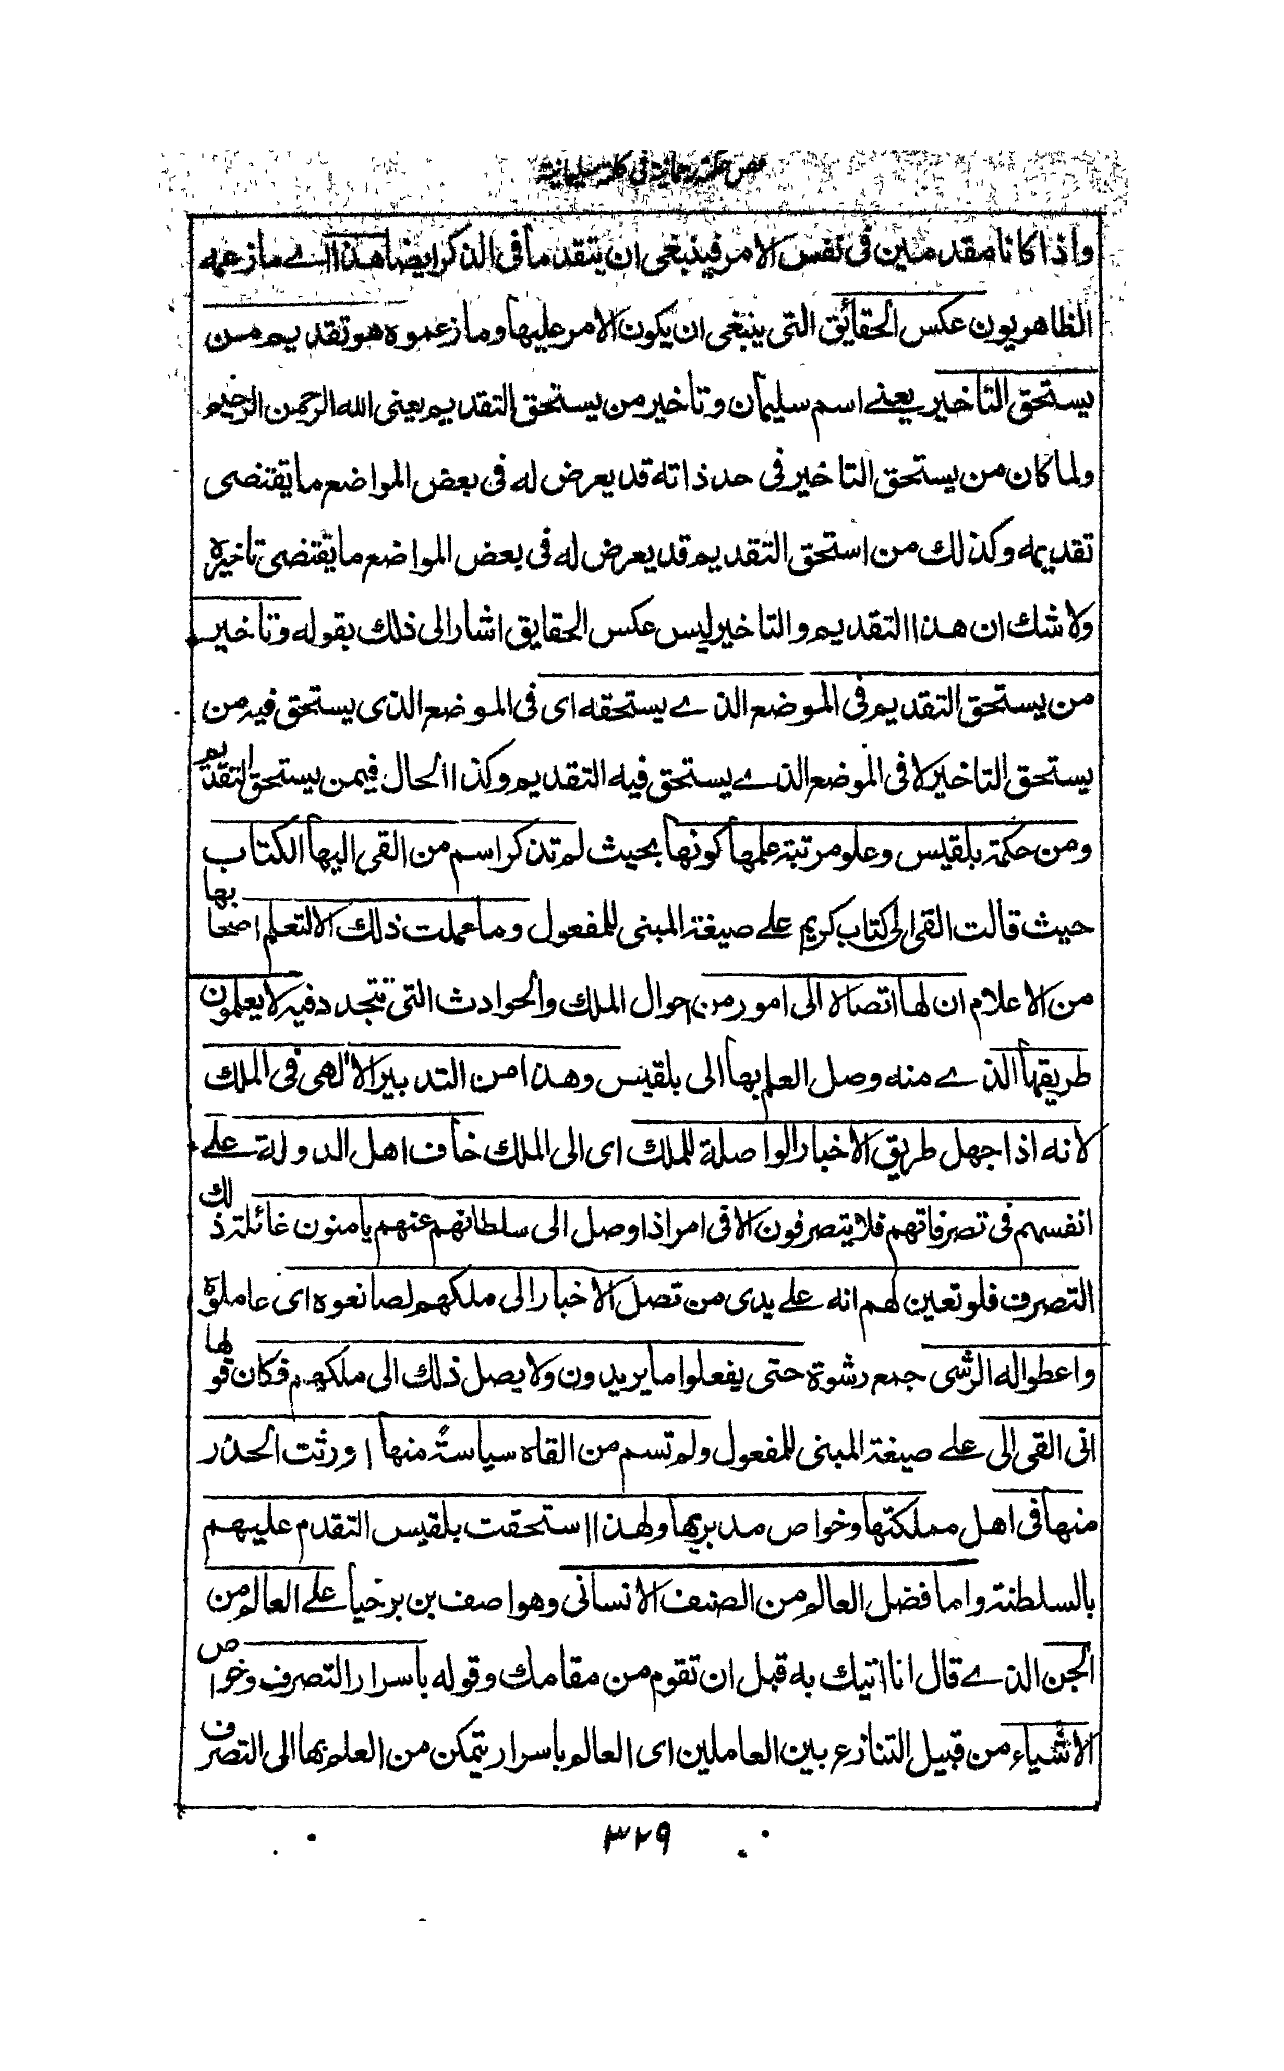 فص حكمة رحمانية في كلمة سليمانية
واذا كانا مقدمين في نفس الامر فينبغي ان يتقدما في الذكر ايضا هذا اے ما زعمه
الظاهريون عكس الحقائق التي ينبغي ان يكون الامر عليها وما زعموه هو تقديم من
يستحق التأخير يعنے اسم سليمان وتاخير من يستحق التقديم يعني الله الرحمن الرحيم
ولما كان من يستحق التاخير في حد ذاته قد يعرض له في بعض المواضع ما يقتضي
تقديمه وكذلك من استحق التقديم قد يعرض له في بعض المواضع ما يقتضي تاخيره
ولا شك ان هذا التقديم والتاخير ليس عكس الحقايق اشار الى ذلك بقوله وتأخير
من يستحق التقديم في الموضع الذے يستحقه اى في الموضع الذى يستحق فيه من
يستحق التاخير لا في الموضع الذے يستحق فيه التقديم وكذا الحال فيمن يستحق التقديم
ومن حكمة بلقيس وعلو مرتبة علمها كونها بحيث لم تذكر اسم من القى اليها الكتاب
حيث قالت القى الى كتاب كريم علے صيغة المبنى للمفعول وما عملت ذلك الا لتعلم اصحابها
من الاعلام ان لها اتصالا الى امور من احوال الملك والحوادث التى تتجدد فيه لا يعلمون
طريقها الذے منه وصل العلم بها الى بلقيس وهذا من التدبير الالهى فى الملك
لانه اذا جهل طريق الاخبار الواصلة للملك اى الى الملك خاف اهل الدولة علے
انفسهم في تصرفاتهم فلا يتصرفون الا في امر اذا وصل الى سلطانهم عنهم يامنون غائلة ذلك
التصرف فلو تعين لهم انه علے يدى من تصل الاخبار الى ملكهم لصانعوه اى عاملوه
واعطوا له الرشى جمع رشوة حتى يفعلوا ما يريدون ولا يصل ذلك الى ملكهم فكان قولها
انى القى الى علے صيغة المبنى للمفعول ولم تسم من القاه سياسةً منها اورثت الحذر
منها في اهل مملكتها وخواص مدبريها ولهذا استحقت بلقيس التقدم عليهم
بالسلطنة واما فضل العالم من الصنف الانسانى وهو اصف بن برخيا علے العالم من
الجن الذے قال انا اتيك به قبل ان تقوم من مقامك وقوله باسرار التصرف وخواص
الاشياء من قبيل التنازع بين العاملين اى العالم باسرار يتمكن من العلم بها الى التصرف
٣٢٩